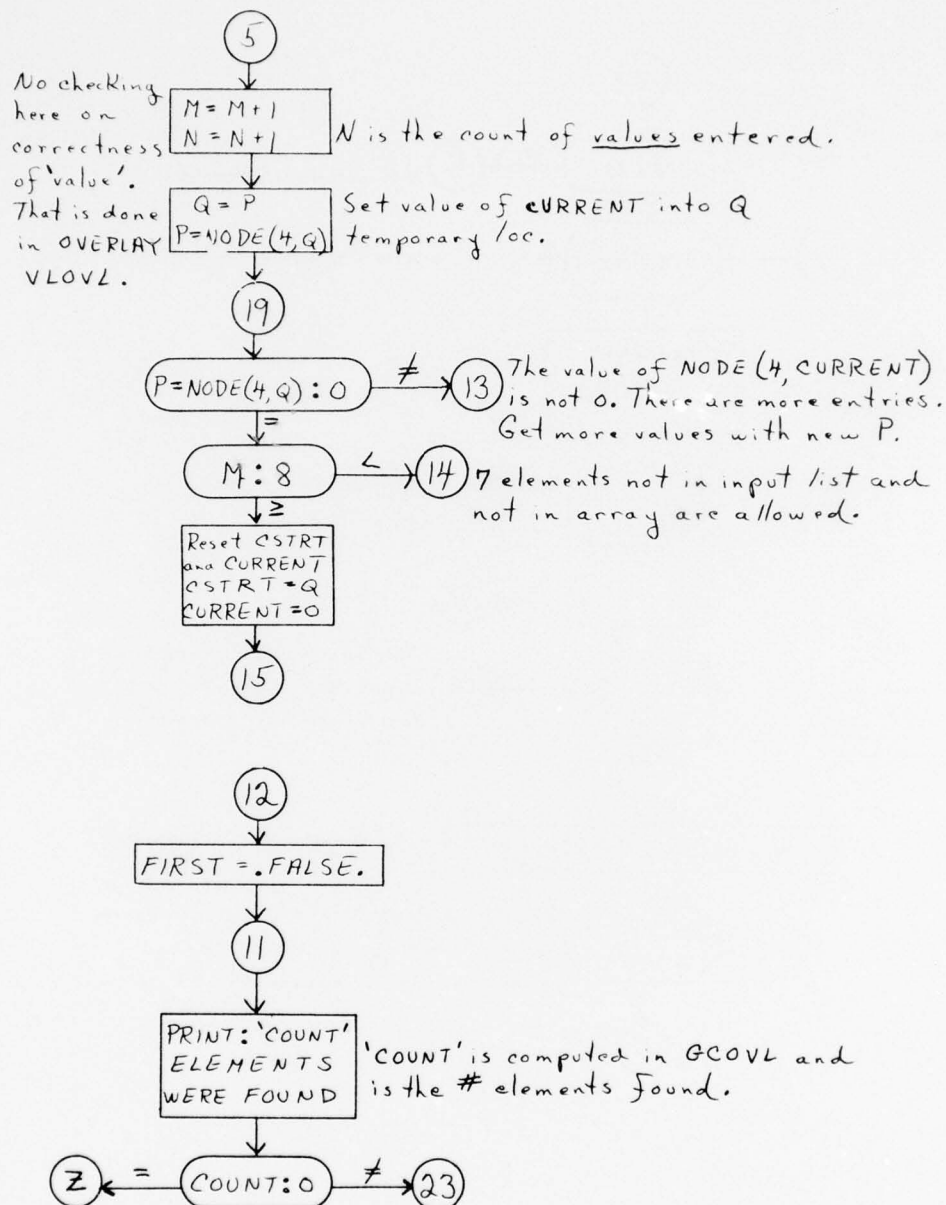 5
No checking
here on
correctness
of 'value'.
That is done
in OVERLAY
VLOVL.
M = M+1
N = N+1
N is the count of values entered.
Q = P
P=NODE(4,Q)
Set value of CURRENT into Q
temporary loc.
19
P=NODE(4,Q) : 0
≠
13
The value of NODE (4, CURRENT)
is not 0. There are more entries.
Get more values with new P.
=
M : 8
<
14
7 elements not in input list and
not in array are allowed.
≥
Reset CSTRT
and CURRENT
CSTRT = Q
CURRENT = 0
15
12
FIRST = .FALSE.
11
PRINT: 'COUNT'
ELEMENTS
WERE FOUND
'COUNT' is computed in GCOVL and
is the # elements found.
Z
=
COUNT: 0
≠
23